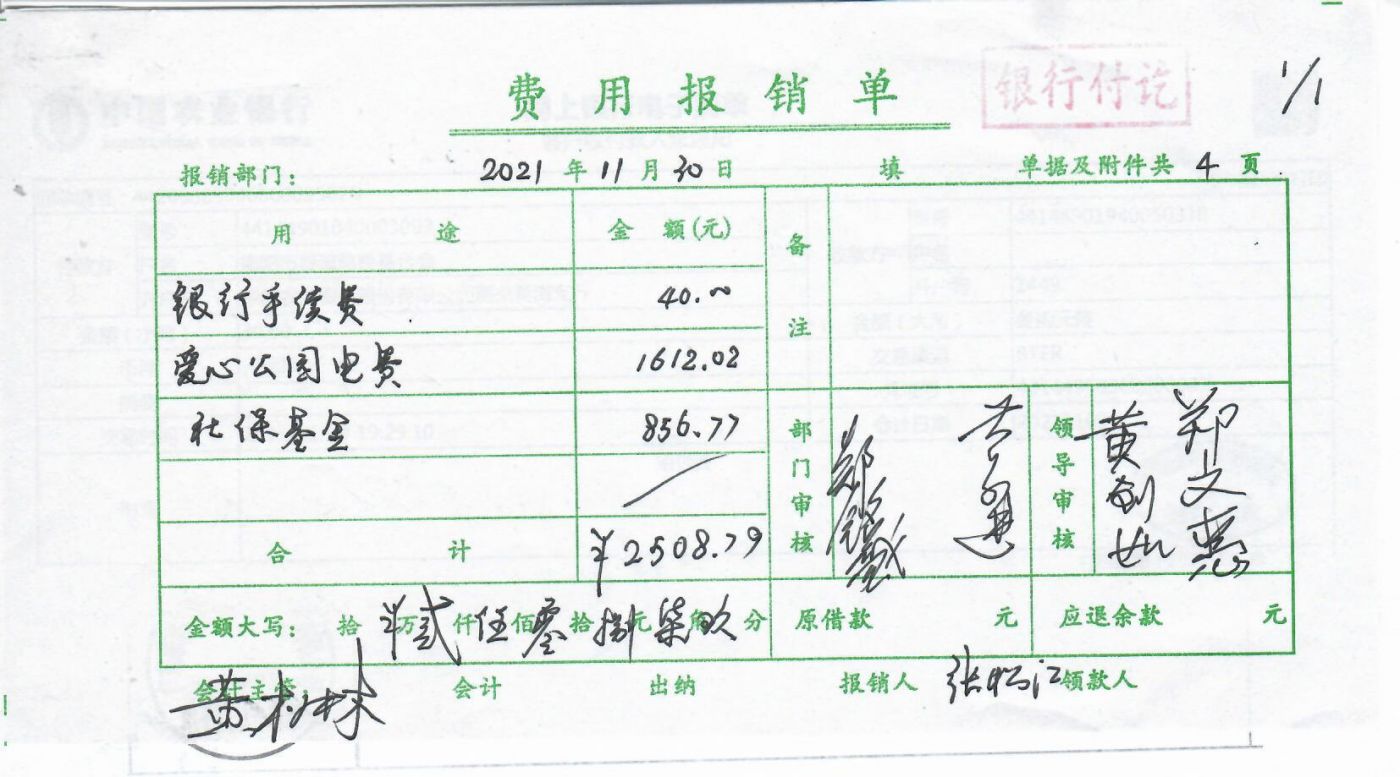 费用报销单
银行付讫
1/1
报销部门： 2021 年 11 月 30 日 填 单据及附件共 4 页
用途 金额(元) 备注
银行手续费 40.00
爱心公园电费 1612.02
社保基金 856.77
合计 ¥2508.79
部门审核
领导审核 郑文惠
金额大写： 拾 ¥万 贰仟 伍佰 零拾 捌元 柒角 玖分 原借款 元 应退余款 元
会计主管： 会计 出纳 报销人 领款人